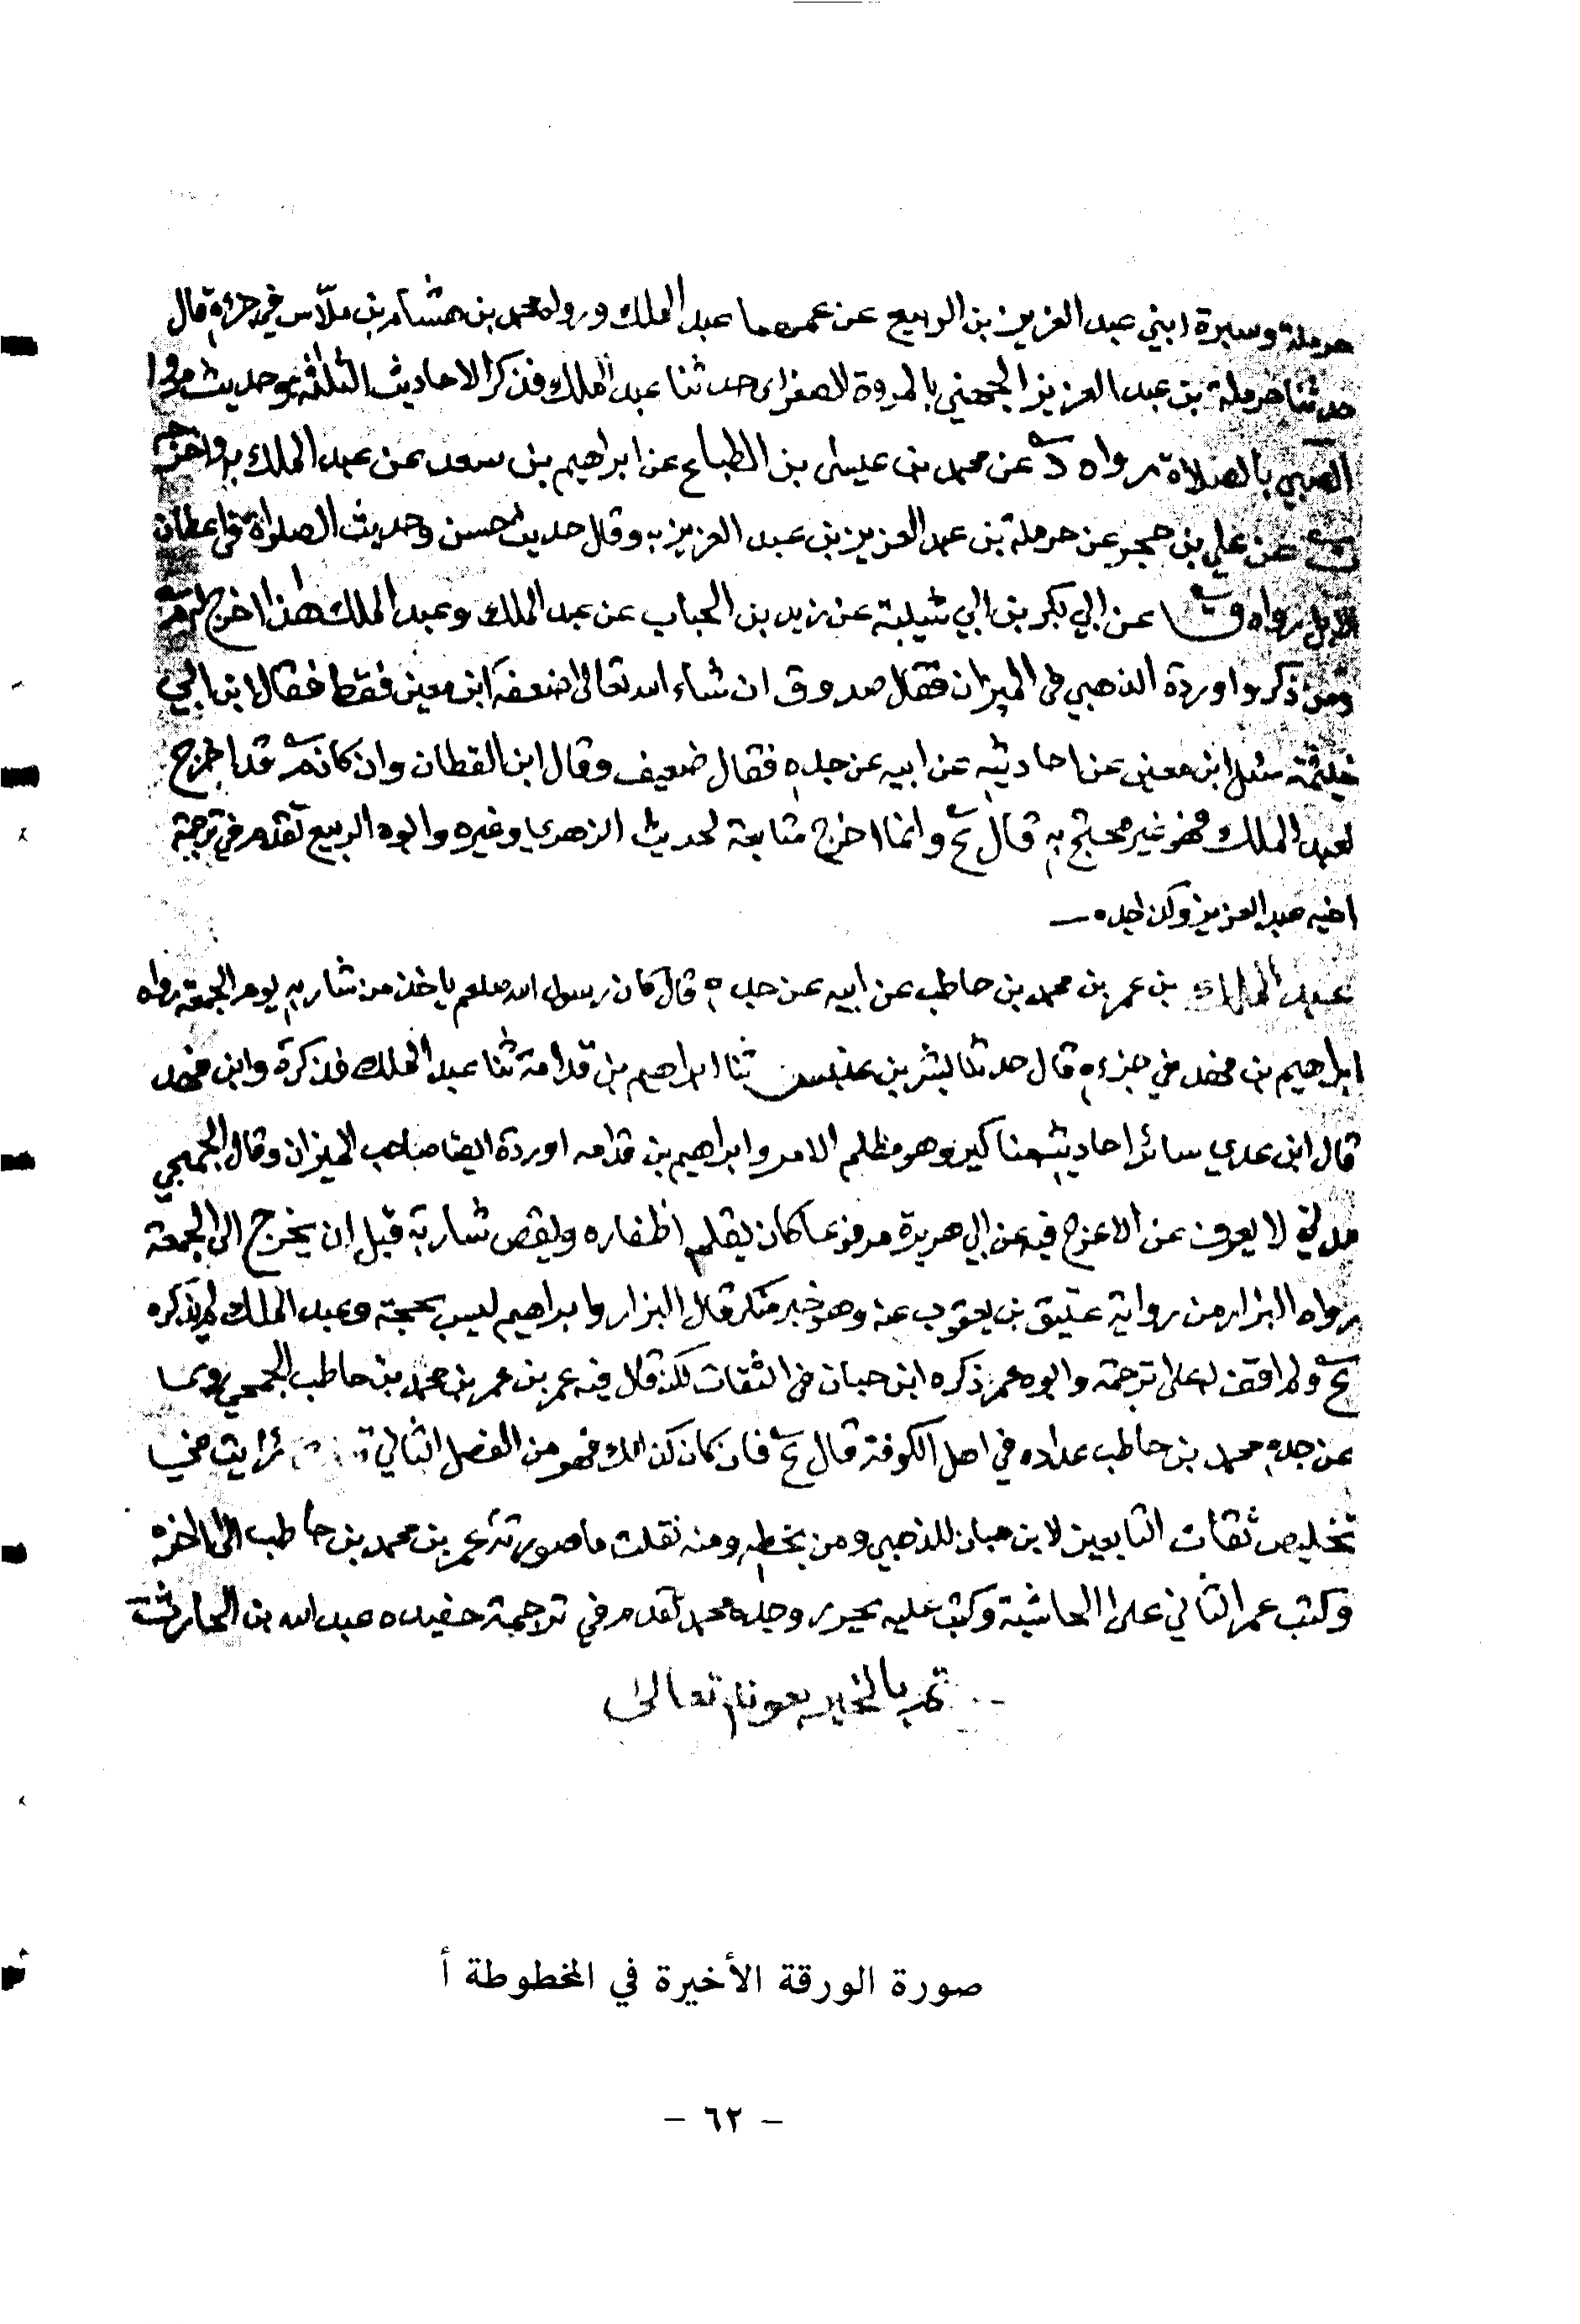 حرملة وسبرة ابني عبد العزيز بن الربيع عن عمهما عبد الملك ورواه محمد بن هشام بن ملاس في جزءه قال
حدثنا حرملة بن عبد العزيز الجهني بالمروة الصغرى حدثنا عبد الملك فذكر الاحاديث الثلثة وحديث مروا
الصبي بالصلاة رواه د عن محمد بن عيسى بن الطباع عن ابراهيم بن سعد عن عبد الملك به واخرجه
ت عن علي بن حجر عن حرملة بن عبد العزيز بن عبد العزيز به وقال حديث حسن وحديث الصلواة في اعطان
الابل رواه ق عن ابي بكر بن ابي شيبة عن زيد بن الحباب عن عبد الملك وعبد الملك هذا اخرج له م
ومن ذكر واوردة الذهبي في الميزان فقال صدوق ان شاء الله تعالى ضعفه ابن معين فقط فقال ابن ابي
خيثمة سئل ابن معين عن احاديثه عن ابيه عن جده فقال ضعيف وقال ابن القطان وان كان م قد اخرج
لعبد الملك فهو غير محتج به قال ع وانما اخرج متابعة لحديث الزهري وغيره وابوه الربيع تقدم في ترجمة
اخيه عبد العزيز وكذا جده
عبد الملك بن عمر بن محمد بن حاطب عن ابيه عن جده قال كان رسول الله صلعم ياخذ من شاربه يوم الجمعة رواه
ابراهيم بن فهد في جزءه قال حدثنا بشر بن عنبس ثنا ابراهيم بن قدامة ثنا عبد الملك فذكرة وابن فهد
قال ابن عدي سائر احاديثه مناكير وهو مظلم الامر وابراهيم بن قدامه اوردة ايضا صاحب الميزان وقال الجمحي
مدني لا يعرف عن الاعرج فيه عن ابي هريرة مرفوعا كان يقلم اظفاره ويقص شاربة قبل ان يخرج الى الجمعة
رواه البزار من رواية عتيق بن يعقوب عنه وهو خبر منكر قال البزار وابراهيم ليس بحجة وعبد الملك لم يذكره
ع ولم اقف له على ترجمة وابوه عمر ذكره ابن حبان في الثقات لكن قال فيه عمر بن عمر بن محمد بن حاطب الجمحي روى
عن جده محمد بن حاطب عداده في اهل الكوفة قال ع فان كان كذالك فهو من الفصل الثاني رايت في
تخليص ثقات التابعين لابن حبان للذهبي ومن بخطه ومنه نقلت ما صورته عمر بن محمد بن حاطب الى اخره
وكتب عمر الثاني على الحاشية وكتب عليه يحرر وجده محمد تقدم في ترجمة حفيده عبد الله بن الحارث
تم بالخير بعونه تعالى
صورة الورقة الأخيرة في المخطوطة أ
– ٦٢ –